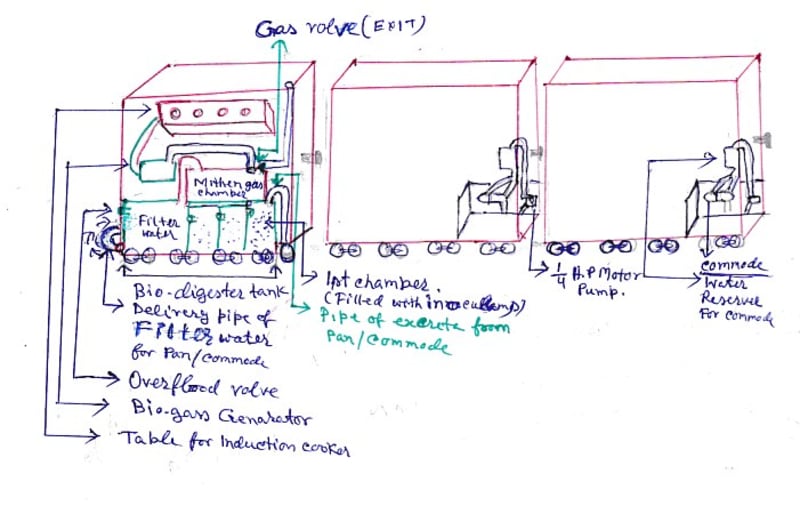 Gas valve (EXIT)
Mithengas
chamber
Filter
water
Bio-digester tank
Delivery pipe of
Filter water
for Pan/commode
Overflood valve
Bio-gass Genarator
Table for Induction cooker
1st chamber.
(Filled with inoculamp)
Pipe of excreta from
Pan/Commode
1/4 H.P Motor
Pump.
commode
Water
Reserve
For commode